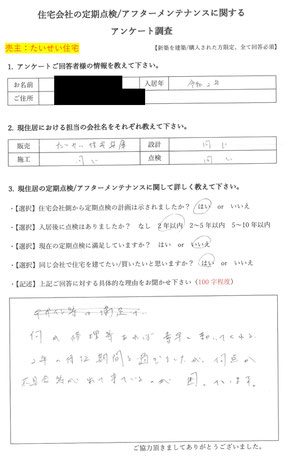 住宅会社の定期点検/アフターメンテナンスに関する
アンケート調査
売主：たいせい住宅
【新築を建築/購入された方限定。全て回答必須】
1. アンケートご回答者様の情報を教えて下さい。
お名前 入居年 令和2年
ご住所
2. 現住居における担当の会社名をそれぞれ教えて下さい。
販売 たいせい住宅 設計 同じ
施工 同じ 点検 同じ
3. 現住居の定期点検/アフターメンテナンスに関して詳しく教えて下さい。
・【選択】住宅会社側から定期点検の計画は示されましたか？ はい or いいえ
・【選択】入居後に点検はありましたか？ なし 2年以内 2～5年以内 5～10年以内
・【選択】現在の定期点検に満足していますか？ はい or いいえ
・【選択】同じ会社で住宅を建てたい/買いたいと思いますか？ はい or いいえ
・【記述】上記ご回答に対する具体的な理由をお聞かせ下さい（100字程度）
何か修理等あれば
2年の保証期間を過ぎましたが、何点か
不具合等が出て来ているのが困っています。
ご協力頂きましてありがとうございました。